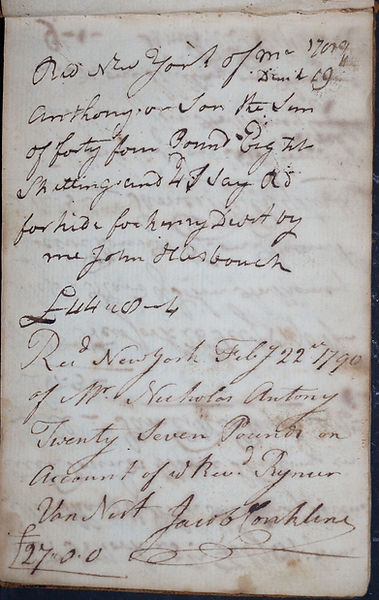 Recd New York of Mr
Anthony or Son the Sum
of forty four Pound Eight
Shilling and 4d I Say Rd
for hide for henry Dewit by
me John Hasbouck
£44 " 8 - 4
Recd New York Feby 22nd 1790
of Mr. Nicholas Antony
Twenty Seven Pounds on
Account of Revd. Rynier
Van Nest Jacob Conkline
£27 " 0 . 0